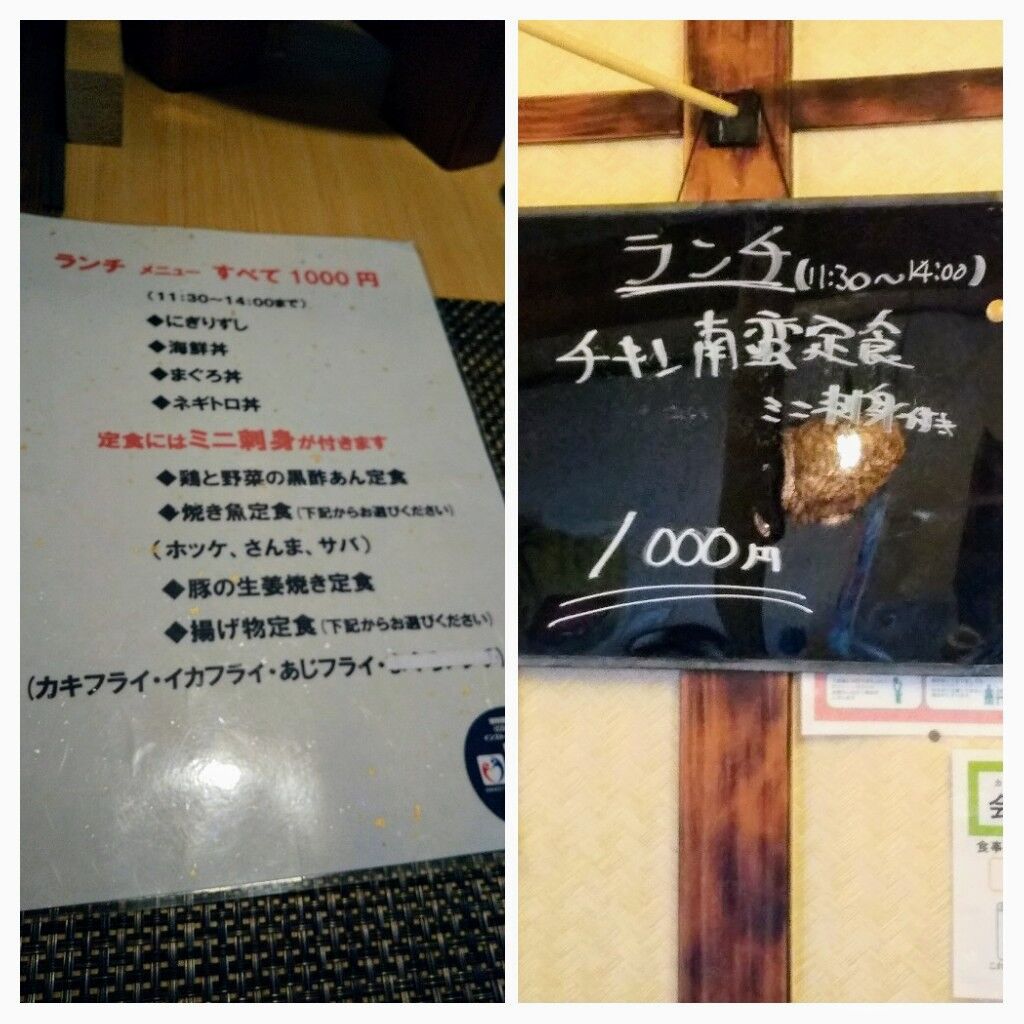 ランチ メニュー すべて 1000 円
(11:30~14:00まで)
◆にぎりずし
◆海鮮丼
◆まぐろ丼
◆ネギトロ丼
定食にはミニ刺身が付きます
◆鶏と野菜の黒酢あん定食
◆焼き魚定食(下記からお選びください)
(ホッケ、さんま、サバ)
◆豚の生姜焼き定食
◆揚げ物定食(下記からお選びください)
(カキフライ・イカフライ・あじフライ・
ランチ(11:30~14:00)
チキン南蛮定食
ミニ刺身付き
1000円
食事